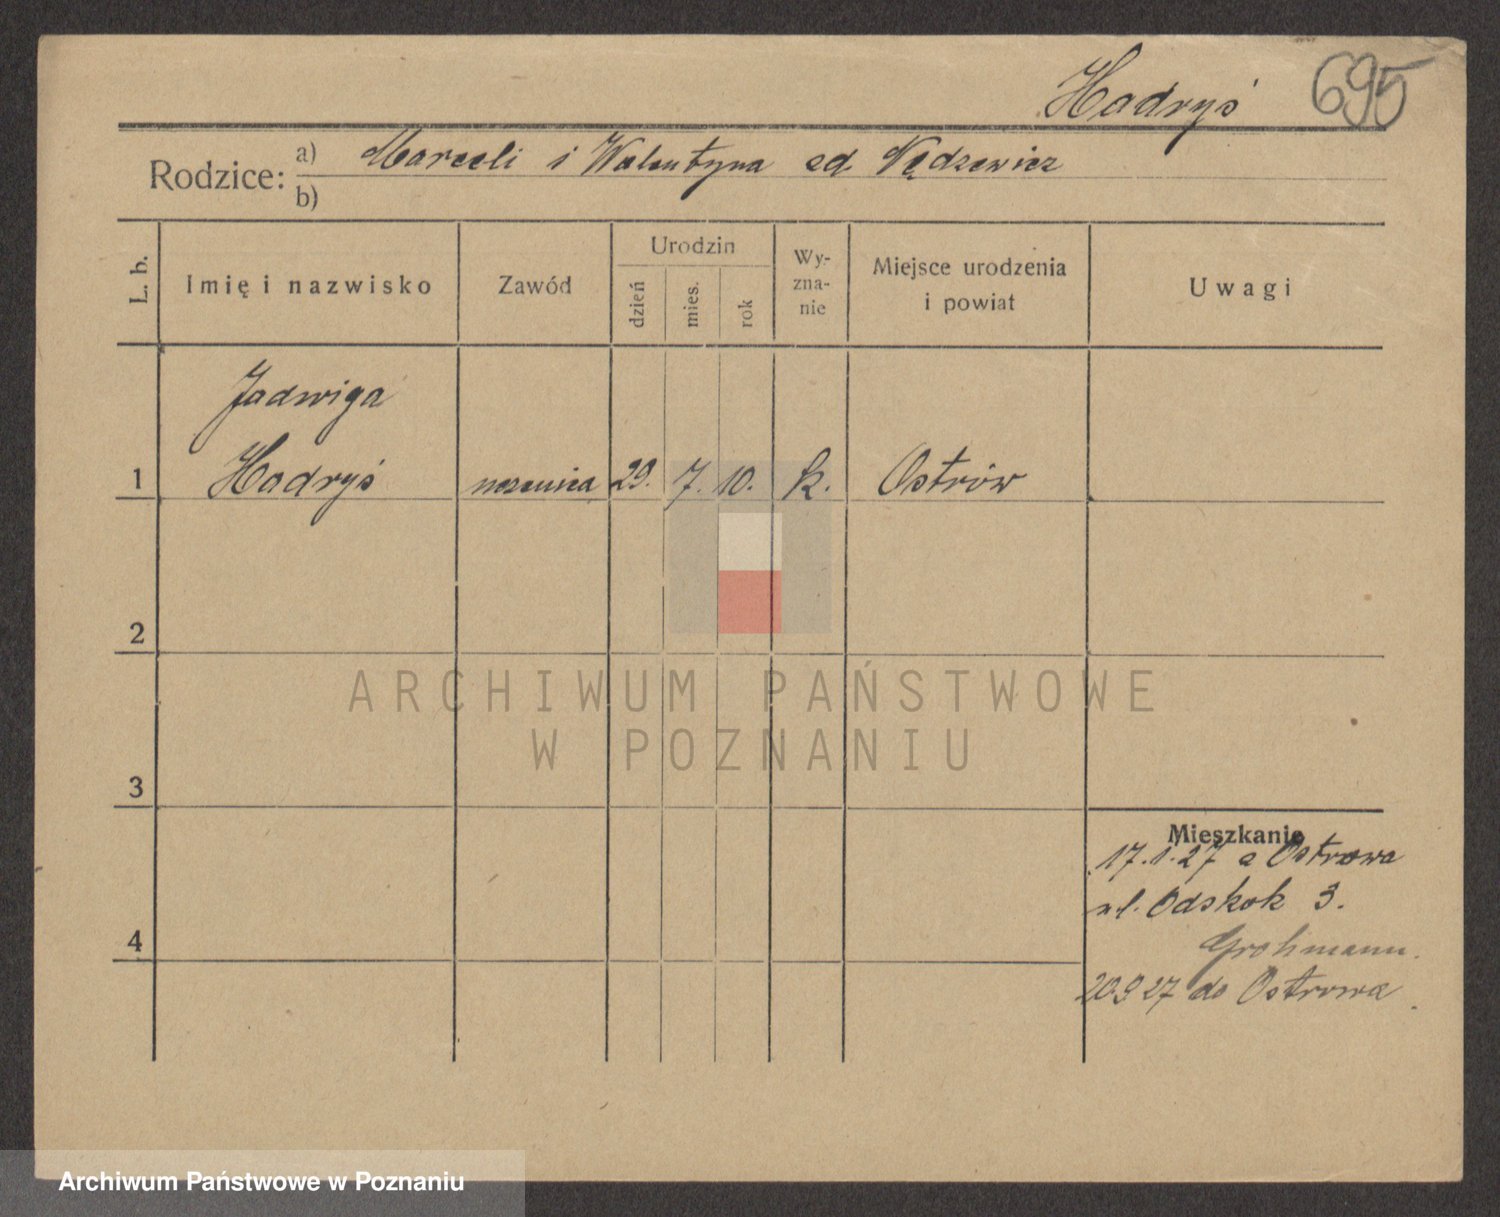 Hadryś 695
Rodzice: a) Marceli i Walentyna zd Nędzewicz
b)
L. b. Imię i nazwisko Zawód Urodzin dzień mies. rok Wy-zna-nie Miejsce urodzenia i powiat Uwagi
Jadwiga
1 Hadryś uczenica 29. 7. 10. k. Ostrów
2
ARCHIWUM PAŃSTWOWE
W POZNANIU
3
Mieszkanie
17.1.27 z Ostrowa
ul. Odskok 3.
4
Grohmann.
20 9 27 do Ostrowa
Archiwum Państwowe w Poznaniu